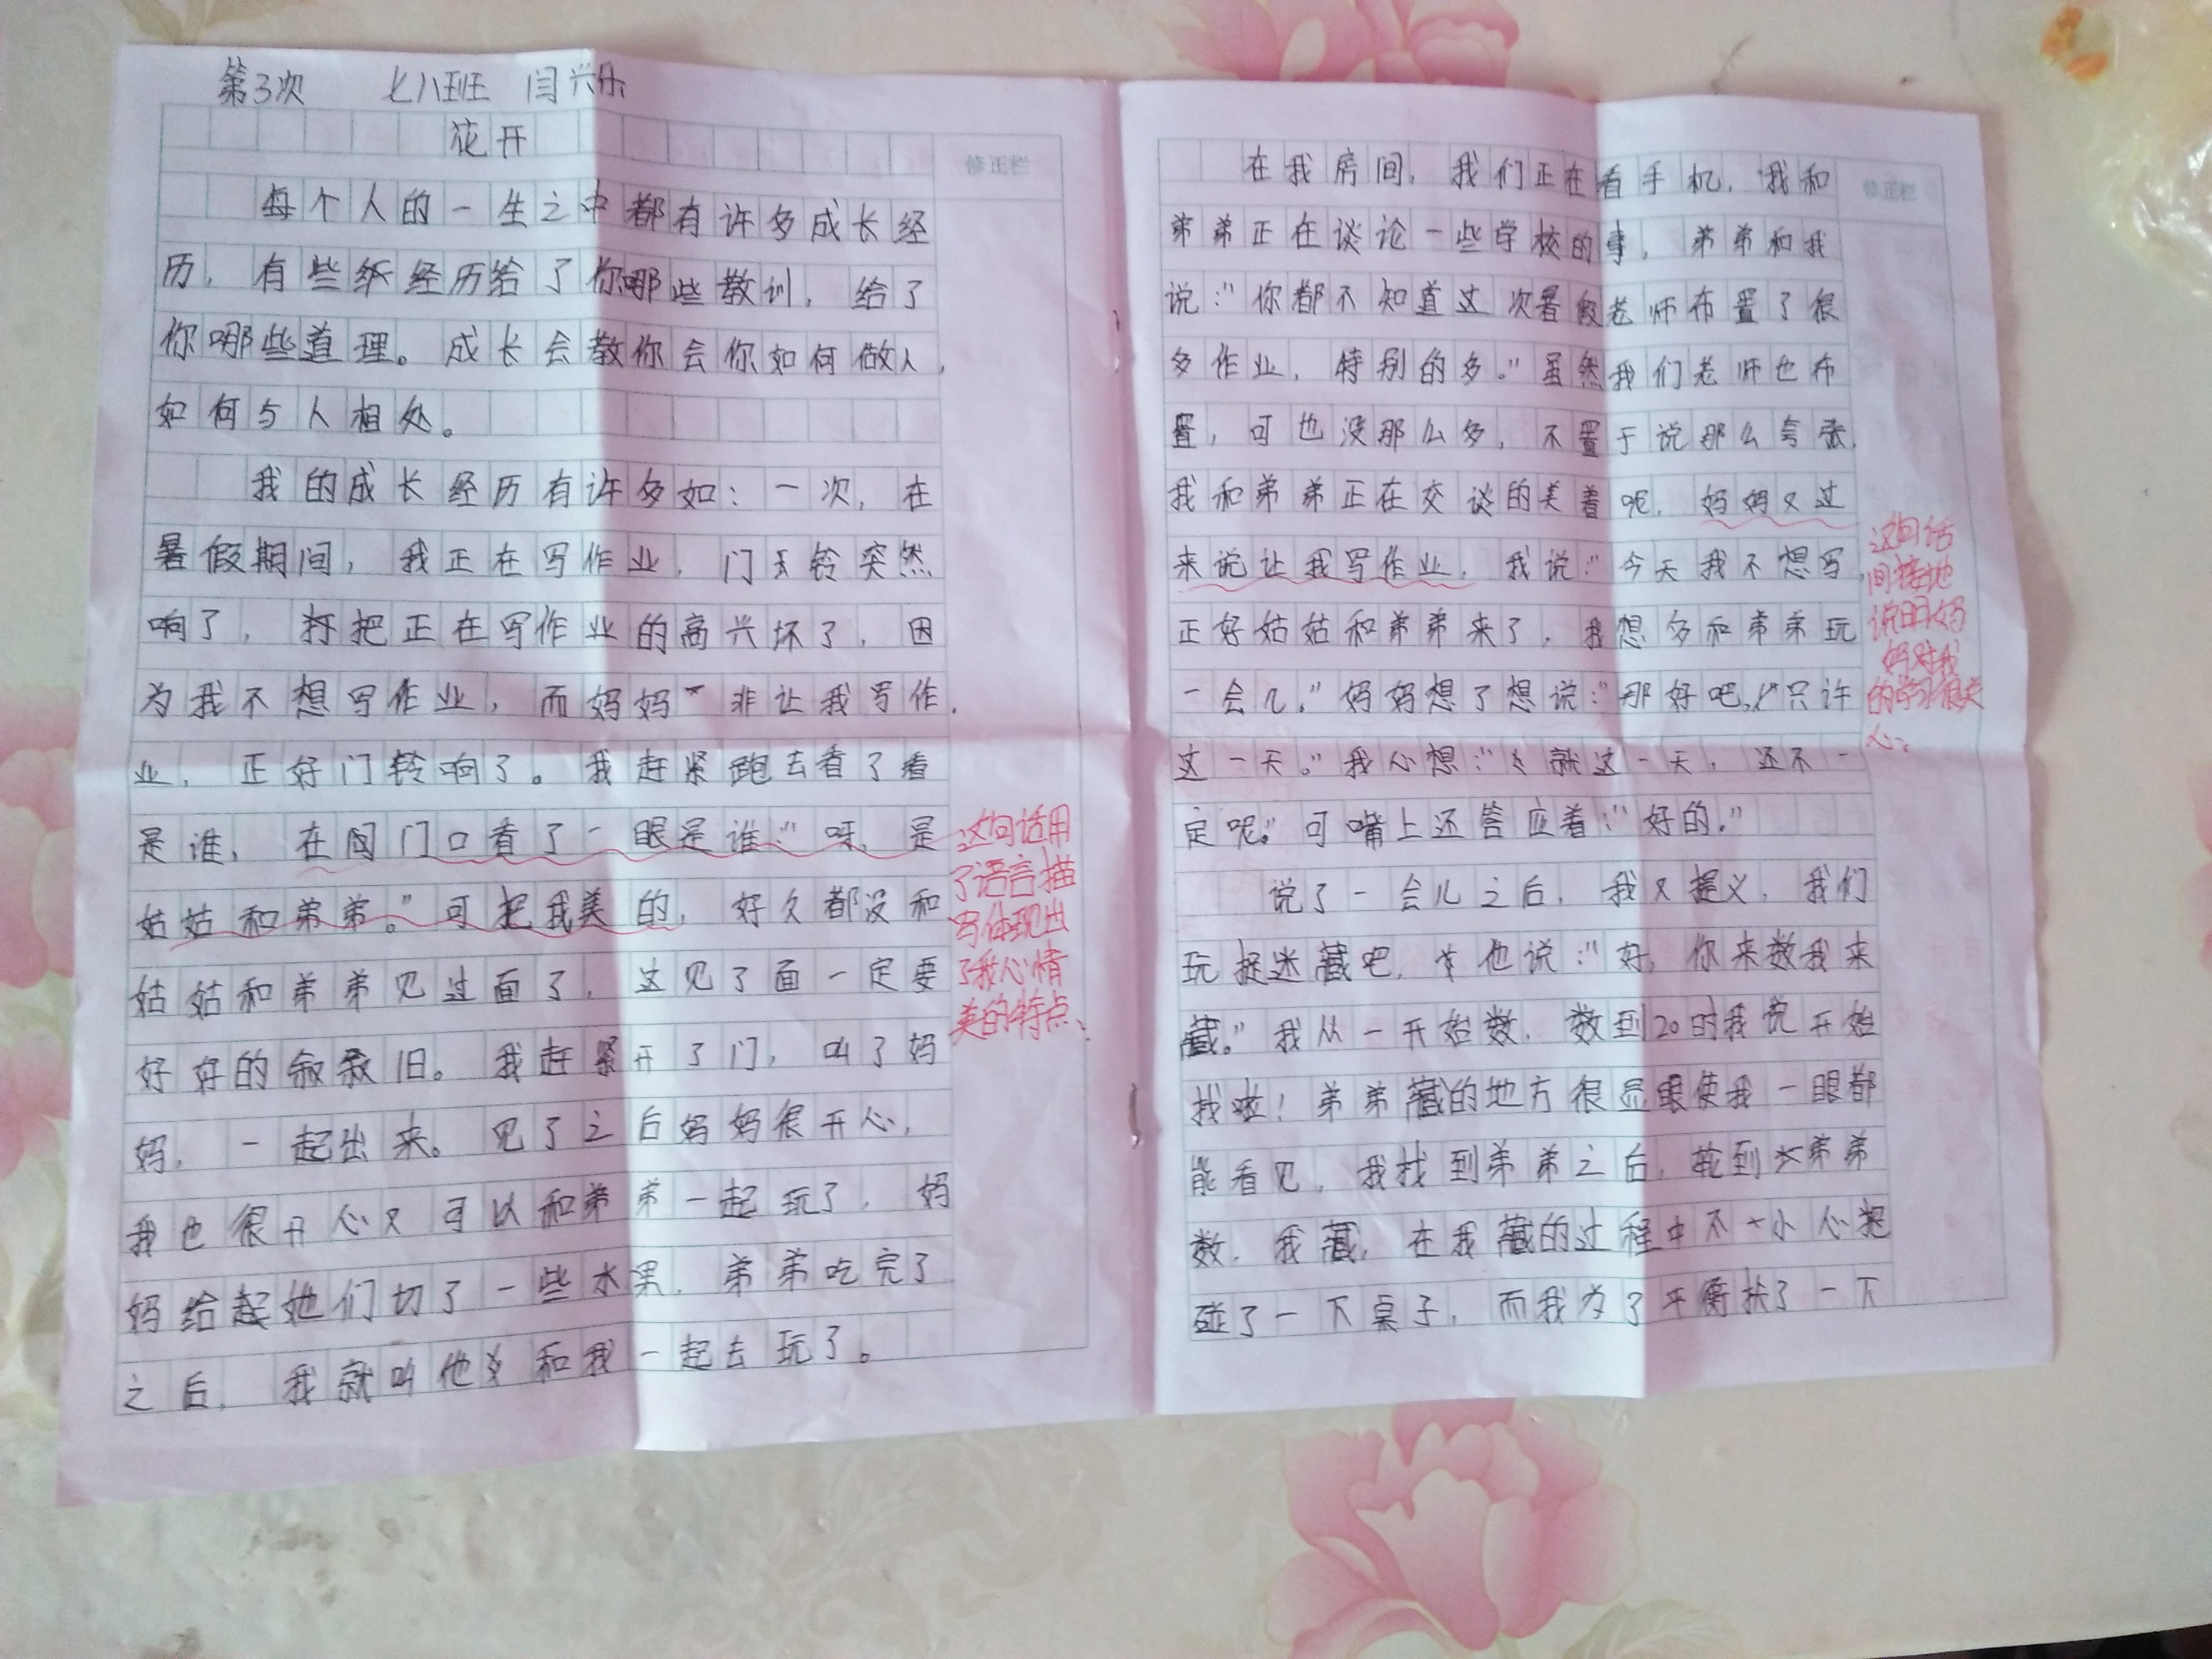 第3次 七八班 闫兴乐
花开
修正栏
每个人的一生之中都有许多成长经
历，有些经历给了你哪些教训，给了
你哪些道理。成长会教你会你如何做人，
如何与人相处。
我的成长经历有许多如：一次，在
暑假期间，我正在写作业，门铃突然
响了，把正在写作业的高兴坏了，因
为我不想写作业，而妈妈非让我写作
业，正好门铃响了。我赶紧跑去看了看
是谁，在门口看了一眼是谁：“呀，是
姑姑和弟弟。”可把我美的，好久都没和
姑姑和弟弟见过面了，这见了面一定要
好好的叙叙旧。我赶紧开了门，叫了妈
妈，一起出来。见了之后妈妈很开心，
我也很开心又可以和弟弟一起玩了，妈
妈给起她们切了一些水果，弟弟吃完了
之后，我就叫他和我一起去玩了。
这句话用
了语言描
写体现出
了我心情
美的特点。
修正栏
在我房间，我们正在看手机，我和
弟弟正在谈论一些学校的事，弟弟和我
说：“你都不知道这次暑假老师布置了很
多作业，特别的多。”虽然我们老师也布
置，可也没那么多，不置于说那么夸张，
我和弟弟正在交谈的美着呢，妈妈又过
来说让我写作业，我说：“今天我不想写，
正好姑姑和弟弟来了，我想多和弟弟玩
一会儿。”妈妈想了想说：“那好吧，只许
这一天。”我心想：“就这一天，还不一
定呢。”可嘴上还答应着：“好的。”
说了一会儿之后，我又提义，我们
玩捉迷藏吧，他说：“好，你来数我来
藏。”我从一开始数，数到20时我说开始
找啦！弟弟藏的地方很显眼使我一眼都
能看见，我找到弟弟之后，轮到弟弟
数，我藏，在我藏的过程中不小心把
碰了一下桌子，而我为了平衡扶了一下
这句话
间接地
说明妈
妈对我
的学习很关
心。